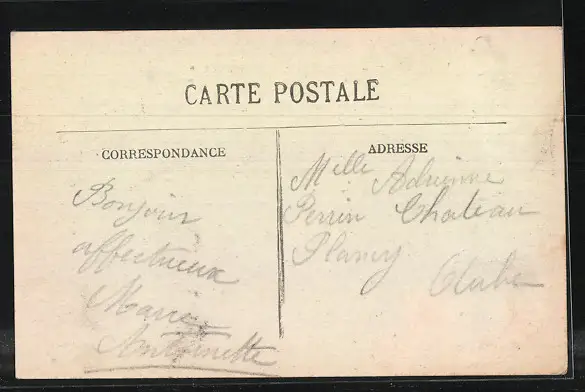 CARTE POSTALE
CORRESPONDANCE
Bonjour
affectueux
Marie
Antoinette
ADRESSE
Melle Adrienne
Perrin Chateau
Plancy
Aube